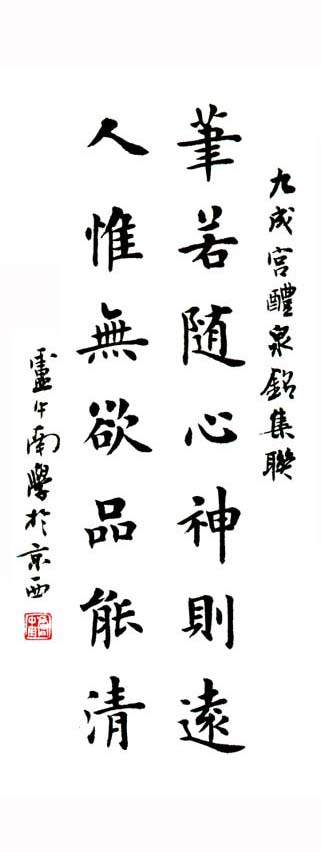 九成宮醴泉銘集聯
筆若随心神則遠
人惟無欲品能清
盧中南學於京西